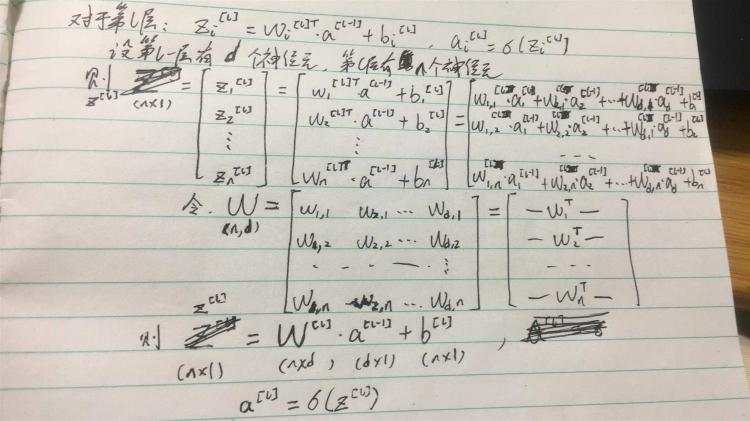 对于第l层: z_i^[l] = w_i^[l]T · a^[l-1] + b_i^[l], a_i^[l] = σ(z_i^[l])
设第l-1层有 d 个神经元, 第l层有 n 个神经元
则 z^[l] (n×1) = [ z_1^[l] ; z_2^[l] ; ⋮ ; z_n^[l] ] = [ w_1^[l]T · a^[l-1] + b_1^[l] ; w_2^[l]T · a^[l-1] + b_2^[l] ; ⋮ ; w_n^[l]T · a^[l-1] + b_n^[l] ] = [ w_{1,1} · a_1^[l-1] + w_{2,1} · a_2^[l-1] + ... + w_{d,1} · a_d^[l-1] + b_1^[l] ; w_{1,2} · a_1^[l-1] + w_{2,2} · a_2^[l-1] + ... + w_{d,2} · a_d^[l-1] + b_2^[l] ; ... ; w_{1,n} · a_1^[l-1] + w_{2,n} · a_2^[l-1] + ... + w_{d,n} · a_d^[l-1] + b_n^[l] ]
令. W (n,d) = [ w_{1,1} w_{2,1} ... w_{d,1} ; w_{1,2} w_{2,2} ... w_{d,2} ; ... ⋮ ; w_{1,n} w_{2,n} ... w_{d,n} ] = [ — w_1^T — ; — w_2^T — ; ... ; — w_n^T — ]
则 z^[l] = W^[l] · a^[l-1] + b^[l] ,
(n×1) (n×d) (d×1) (n×1)
a^[l] = σ(z^[l])